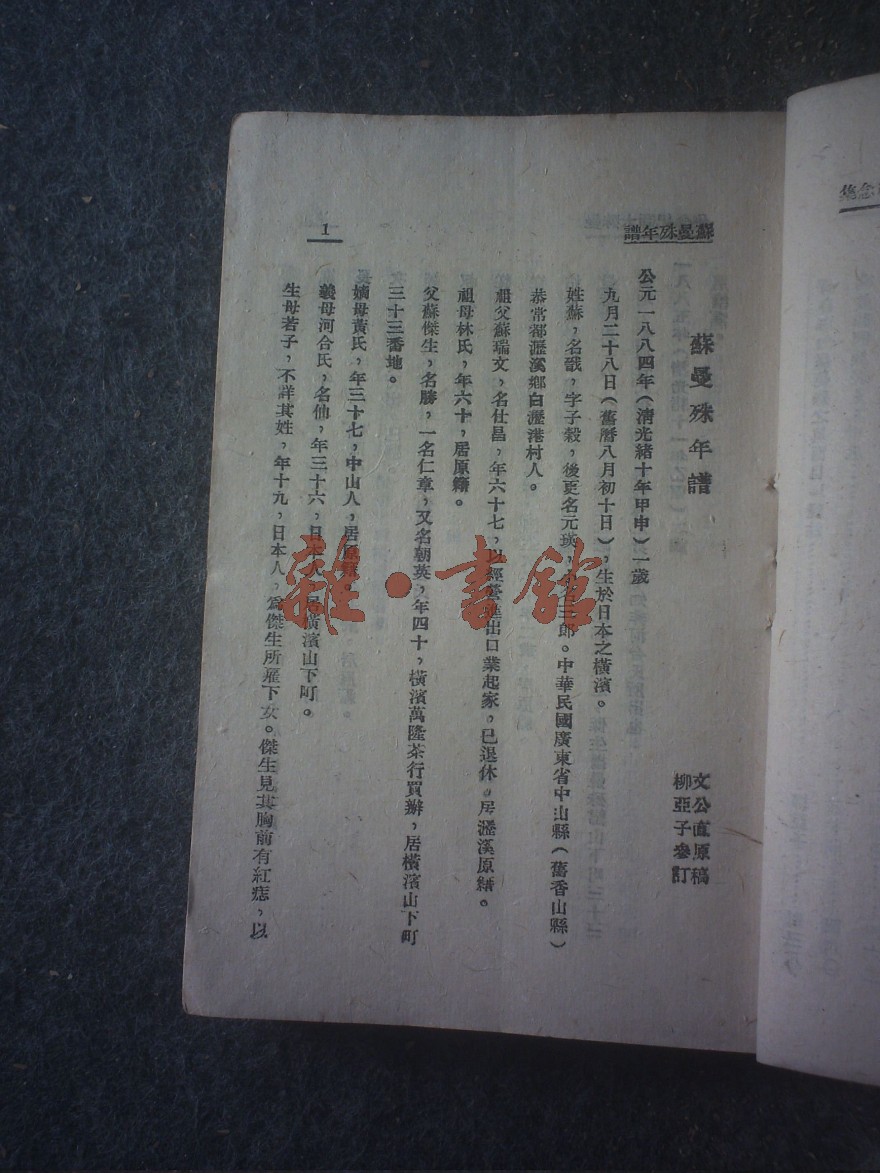 蘇曼殊年譜
1
蘇曼殊年譜
文公直原稿
柳亞子參訂
公元一八八四年（清光緒十年甲申）一歲
九月二十八日（舊曆八月初十日），生於日本之橫濱。
姓蘇，名戩，字子穀，後更名元瑛，小名三郎。中華民國廣東省中山縣（舊香山縣）
恭常都瀝溪鄉白瀝港村人。
祖父蘇瑞文，名仕昌，年六十七，以經營進出口業起家，已退休。居瀝溪原籍。
祖母林氏，年六十，居原籍。
父蘇傑生，名勝，一名仁章，又名朝英，年四十，橫濱萬隆茶行買辦，居橫濱山下町
三十三番地。
嫡母黃氏，年三十七，中山人，居原籍。
義母河合氏，名仙，年三十六，日本人，居橫濱山下町。
生母若子，不詳其姓，年十九，日本人，為傑生所雇下女。傑生見其胸前有紅痣，以
雜·書館
念集